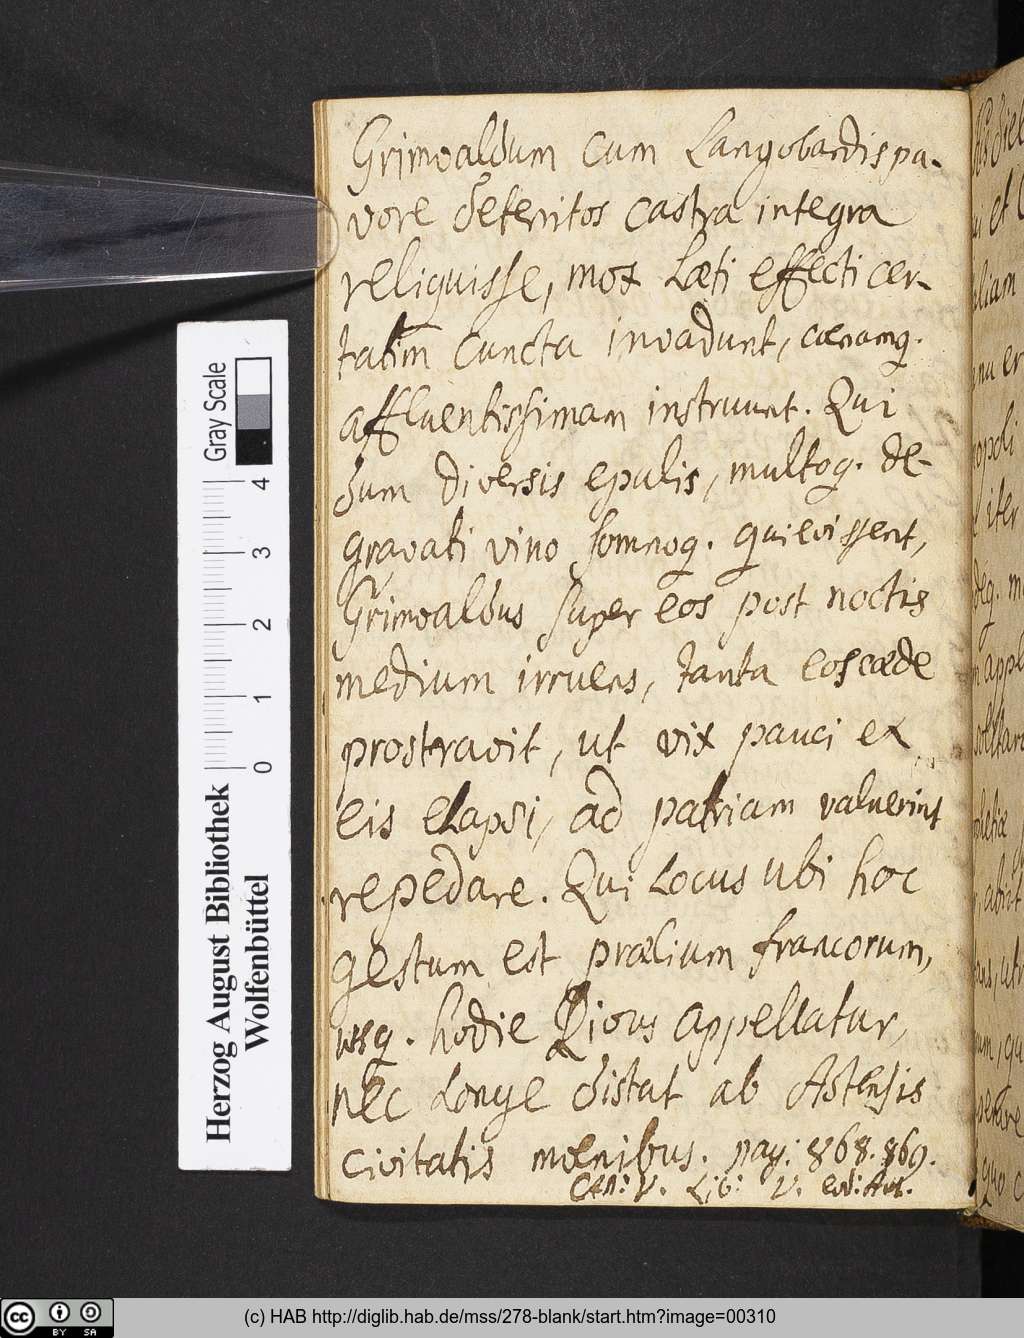 Grimoaldum cum Langobardis pa-
vore deterritos castra integra
reliquisse, mox Læti effecti cer-
tatim cuncta invadunt, cænamq.
affluentissimam instruunt. Qui
dum diversis epulis, multoq. de-
gravati vino somnoq. quievissent,
Grimoaldus super eos post noctis
medium irruens, tanta eos cæde
prostravit, ut vix pauci ex
eis elapsi, ad patriam valuerint
repedare. Qui Locus ubi hoc
gestum est prælium francorum,
usq. hodie Rivus appellatur,
nec Longe distat ab Astensis
civitatis mœnibus. pag: 868. 869.
Cap: V. Lib: V. eod: Aut.
Herzog August Bibliothek
Wolfenbüttel
0 1 2 3 4
Gray Scale
cc BY SA
(c) HAB http://diglib.hab.de/mss/278-blank/start.htm?image=00310